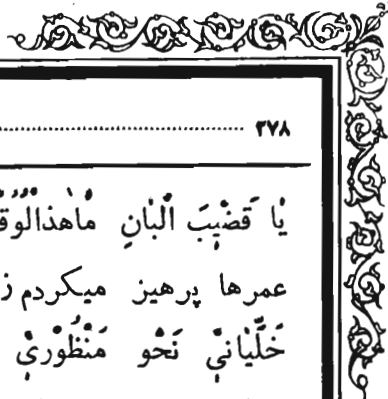 ۳۷۸
یٰا قَضْیبَ الْبٰانِ مٰاهذَالْوُق
عمرها پرهیز میکردم ز
خَلِّیٰانیْ نَحْو مَنْظُوریْ